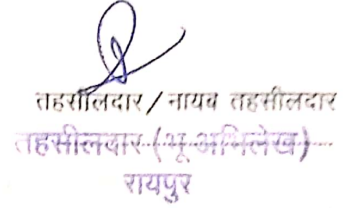 तहसीलदार / नायब तहसीलदार
तहसीलदार (भू अभिलेख)
रायपुर